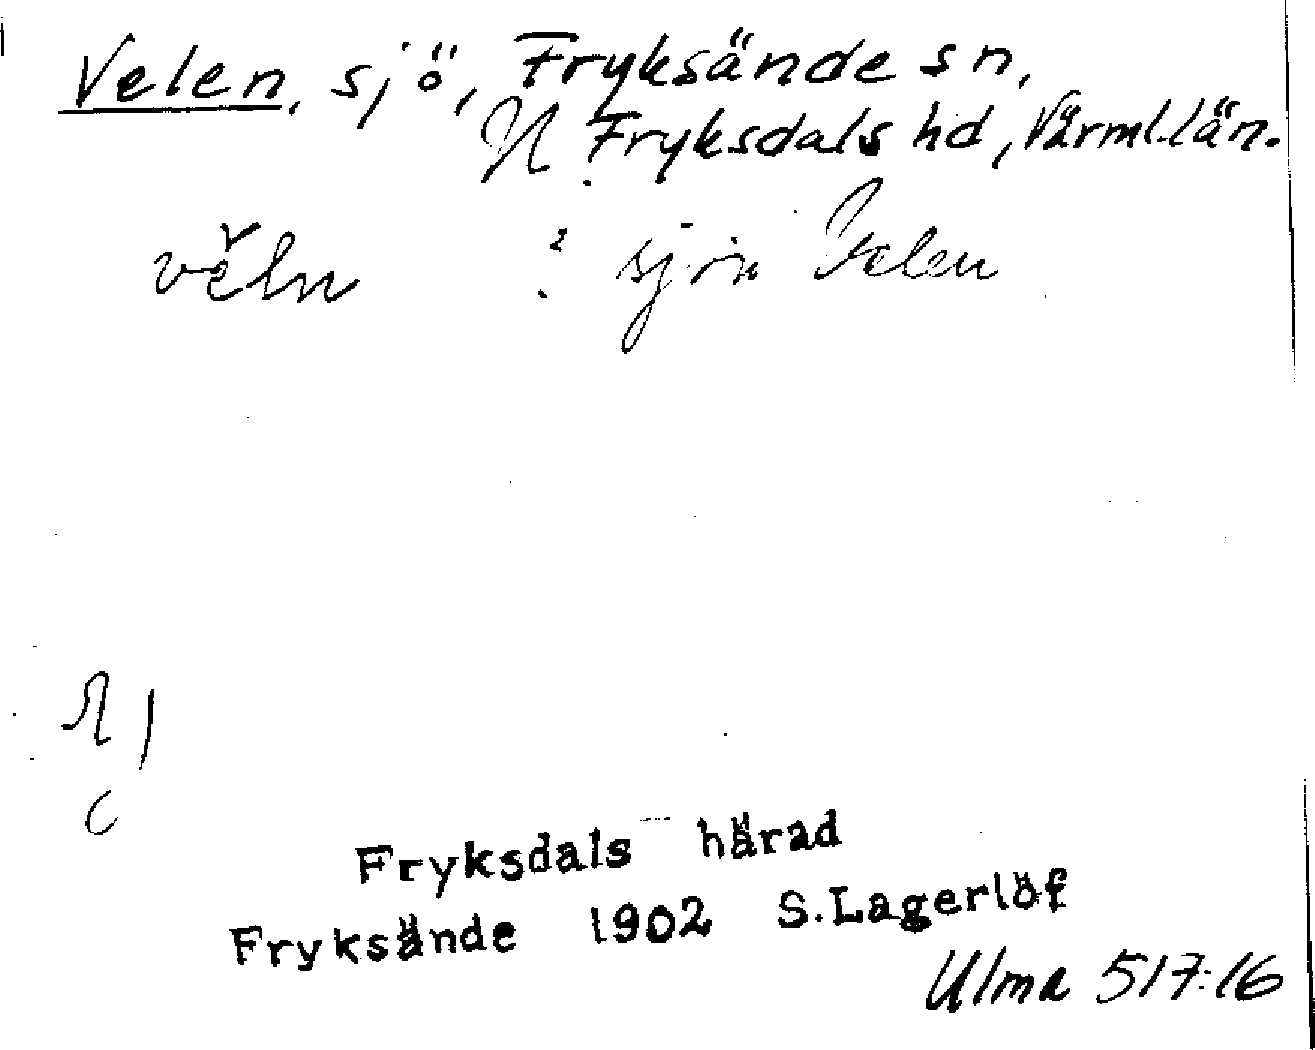 Velen, sjö, Fryksände sn,
N. Fryksdals hd, Värml. län.
vĕln : sjön Velen
Fryksdals härad
Fryksände 1902 S. Lagerlöf
Ulma 517:16